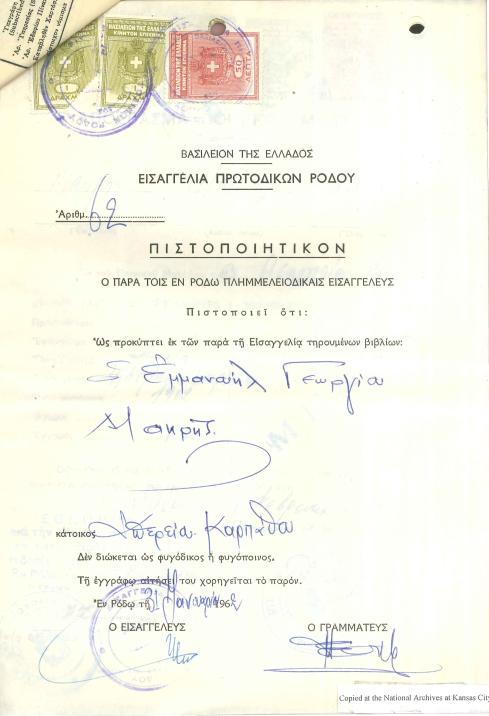 ΒΑΣΙΛΕΙΟΝ ΤΗΣ ΕΛΛΑΔΟΣ
ΚΙΝΗΤΟΝ ΕΠΙΣΗΜΑ
1 ΔΡΑΧΜΗ
ΒΑΣΙΛΕΙΟΝ ΤΗΣ ΕΛΛΑΔΟΣ
ΚΙΝΗΤΟΝ ΕΠΙΣΗΜΑ
50 ΛΕΠΤΑ
ΒΑΣΙΛΕΙΟΝ ΤΗΣ ΕΛΛΑΔΟΣ
ΕΙΣΑΓΓΕΛΙΑ ΠΡΩΤΟΔΙΚΩΝ ΡΟΔΟΥ
Ἀριθμ. 62
ΠΙΣΤΟΠΟΙΗΤΙΚΟΝ
Ο ΠΑΡΑ ΤΟΙΣ ΕΝ ΡΟΔΩ ΠΛΗΜΜΕΛΕΙΟΔΙΚΑΙΣ ΕΙΣΑΓΓΕΛΕΥΣ
Πιστοποιεῖ ὅτι:
Ὡς προκύπτει ἐκ τῶν παρὰ τῇ Εἰσαγγελίᾳ τηρουμένων βιβλίων:
Ἐμμανουὴλ Γεωργίου
Μακρῆς
κάτοικος Ἀπερείου Καρπάθου
Δὲν διώκεται ὡς φυγόδικος ἢ φυγόποινος.
Τῇ ἐγγράφῳ αἰτήσει του χορηγεῖται τὸ παρόν.
Ἐν Ρόδῳ τῇ 31 Ἰανουαρίου 1962
Ο ΕΙΣΑΓΓΕΛΕΥΣ Ο ΓΡΑΜΜΑΤΕΥΣ
Copied at the National Archives at Kansas City